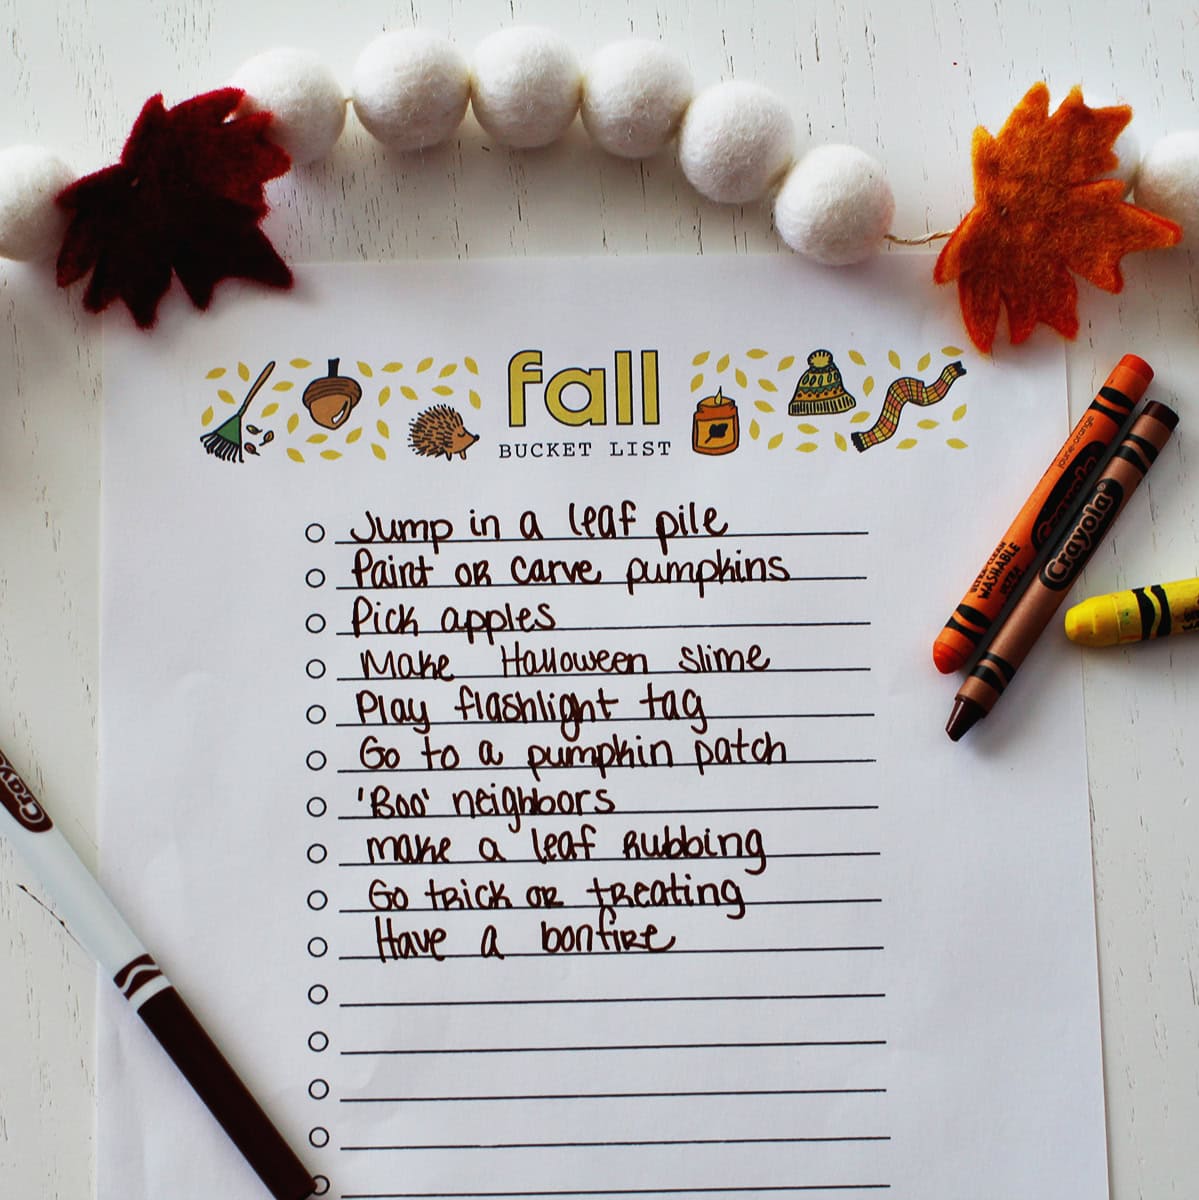 fall
BUCKET LIST
Jump in a leaf pile
Paint or carve pumpkins
Pick apples
Make Halloween slime
Play flashlight tag
Go to a pumpkin patch
'Boo' neighbors
make a leaf rubbing
Go trick or treating
Have a bonfire
jaune-orange
Crayola
WASHABLE
Crayola®
Crayo